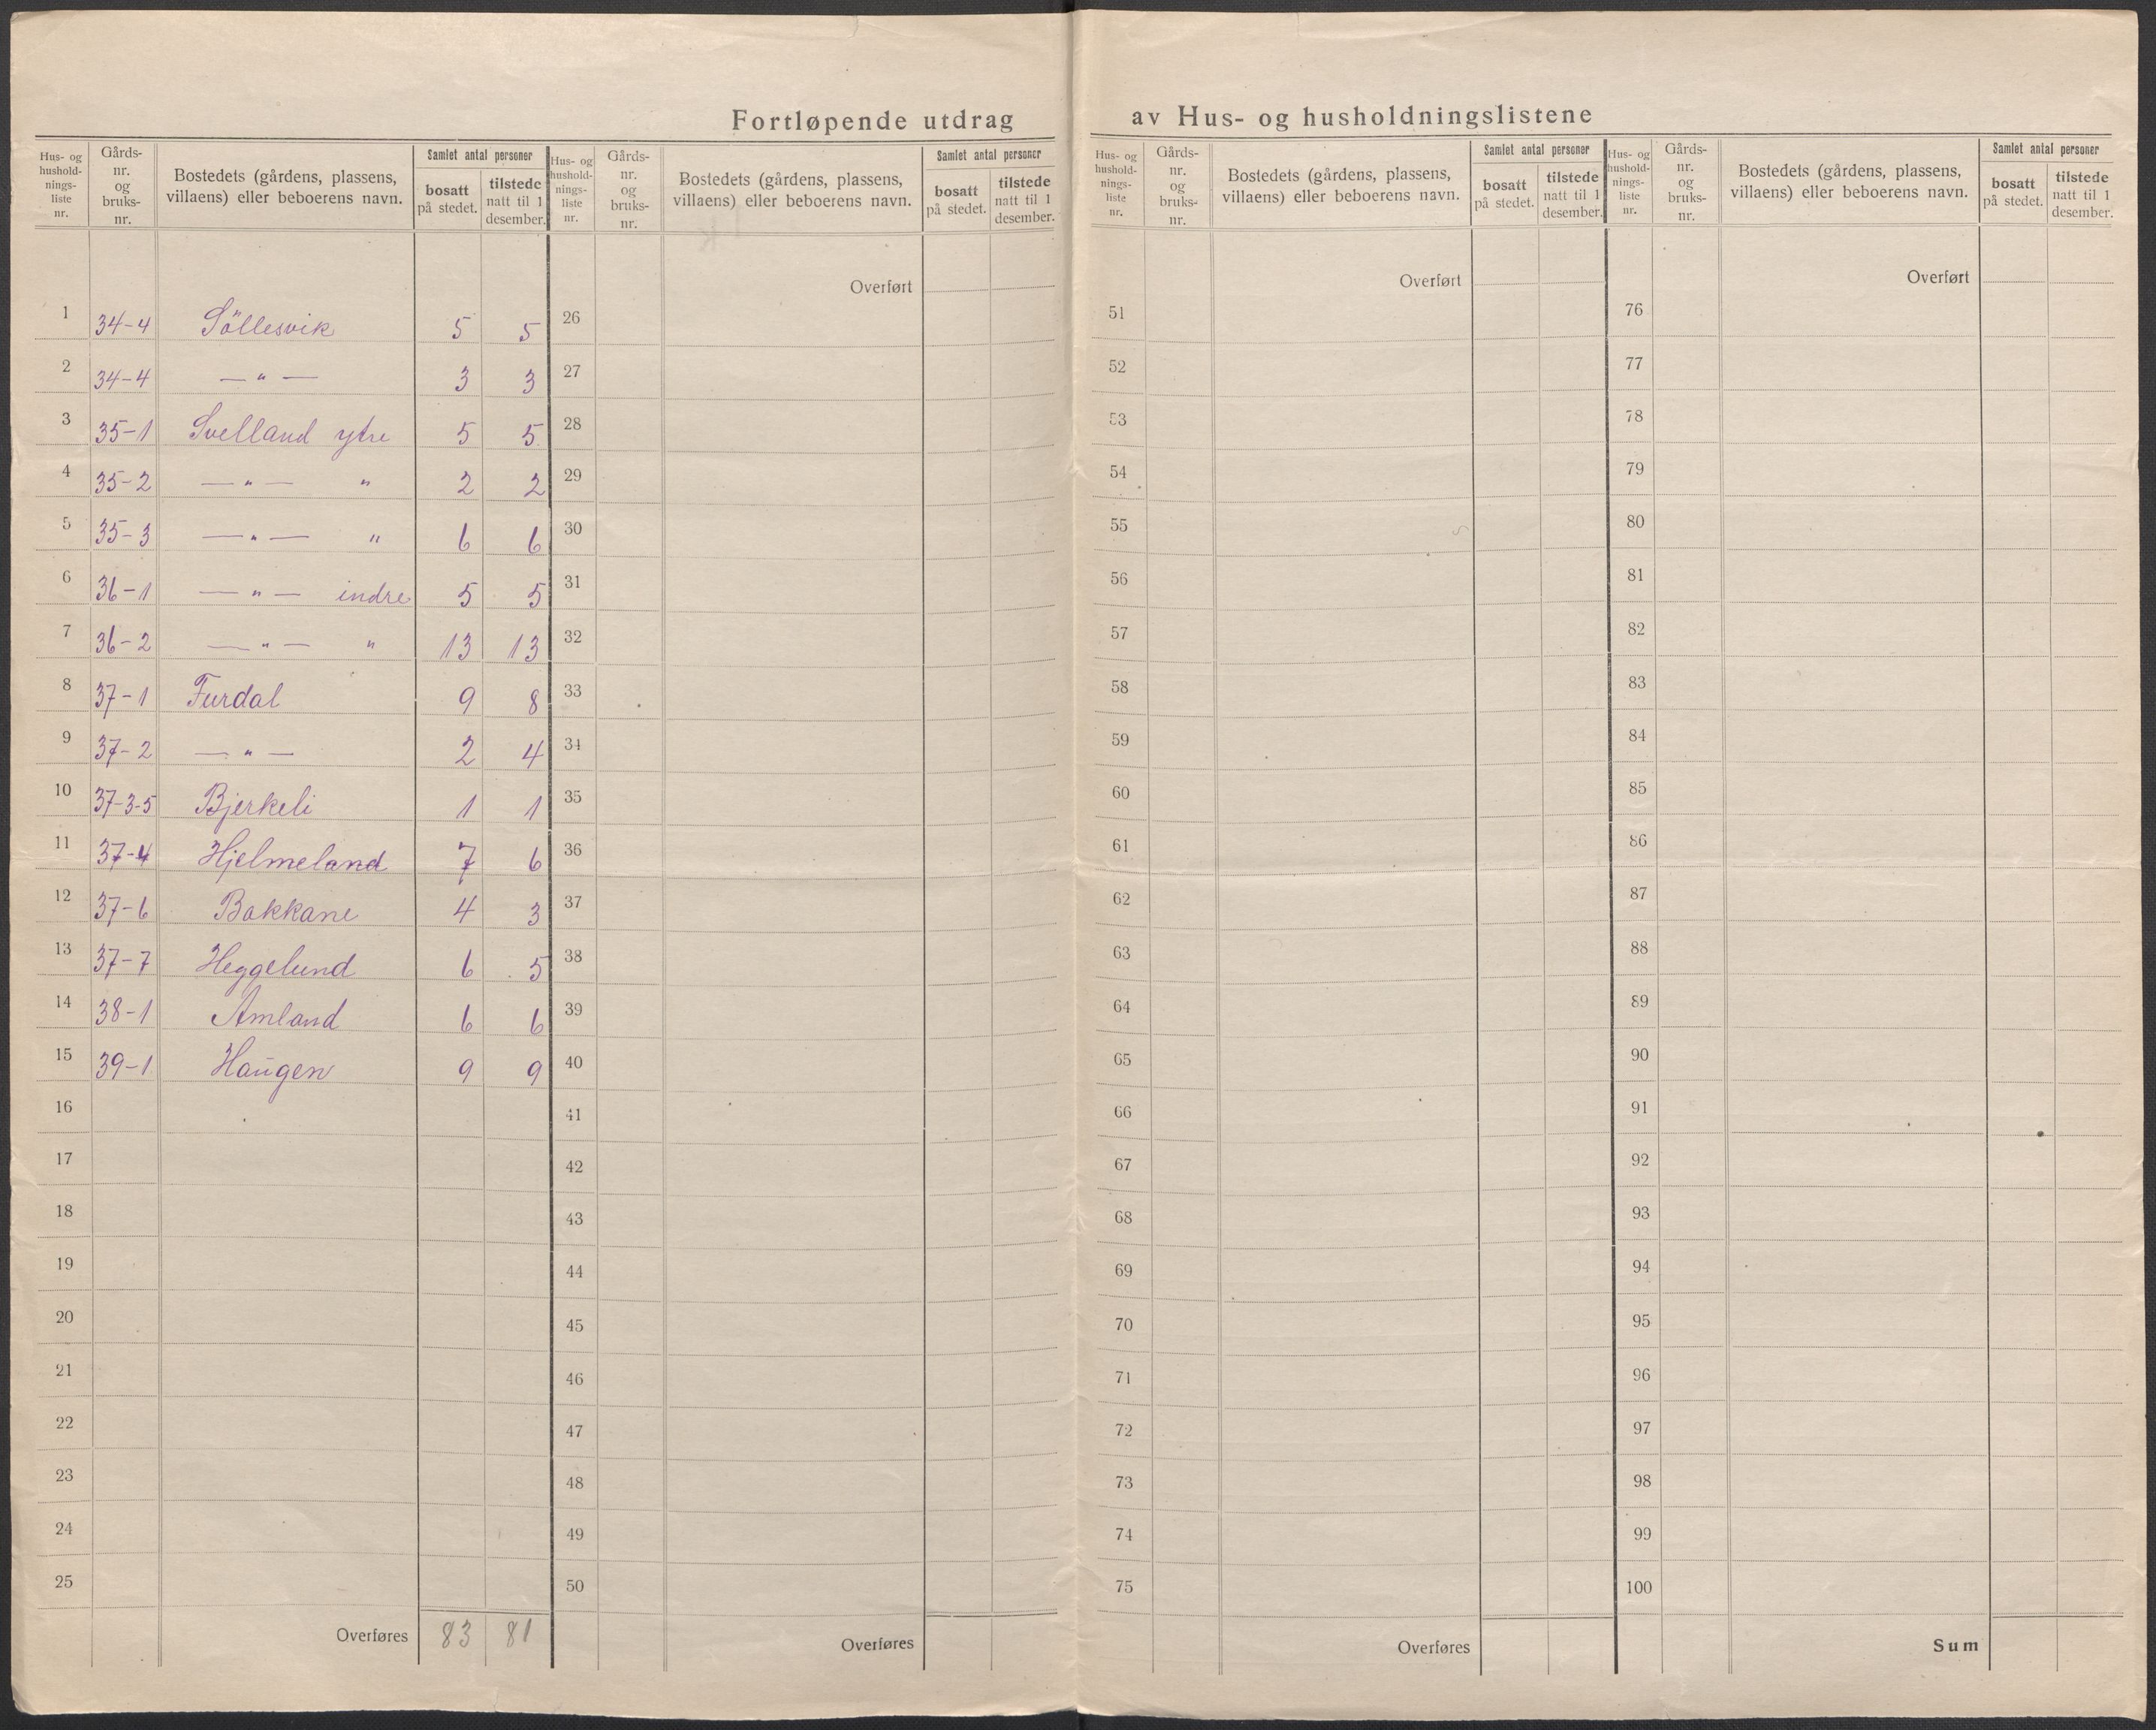 Fortløpende utdrag av Hus- og husholdningslistene
Hus- og hushold-nings-liste nr. Gårds-nr. og bruks-nr. Bostedets (gårdens, plassens, villaens) eller beboerens navn. Samlet antal personer bosatt på stedet. tilstede natt til 1 desember.
1 34-4 Söllesvik 5 5
2 34-4 — " — 3 3
3 35-1 Svelland ytre 5 5
4 35-2 — " — " 2 2
5 35-3 — " — " 6 6
6 36-1 — " — indre 5 5
7 36-2 — " — " 13 13
8 37-1 Furdal 9 8
9 37-2 — " — 2 4
10 37-3-5 Bjerkeli 1 1
11 37-4 Hjelmeland 7 6
12 37-6 Bakkane 4 3
13 37-7 Heggelund 6 5
14 38-1 Amland 6 6
15 39-1 Haugen 9 9
16
17
18
19
20
21
22
23
24
25
Overføres 83 81
Hus- og hushold-nings-liste nr. Gårds-nr. og bruks-nr. Bostedets (gårdens, plassens, villaens) eller beboerens navn. Samlet antal personer bosatt på stedet. tilstede natt til 1 desember.
Overført
26
27
28
29
30
31
32
33
34
35
36
37
38
39
40
41
42
43
44
45
46
47
48
49
50
Overføres
Hus- og hushold-nings-liste nr. Gårds-nr. og bruks-nr. Bostedets (gårdens, plassens, villaens) eller beboerens navn. Samlet antal personer bosatt på stedet. tilstede natt til 1 desember.
Overført
51
52
53
54
55
56
57
58
59
60
61
62
63
64
65
66
67
68
69
70
71
72
73
74
75
Overføres
Hus- og hushold-nings-liste nr. Gårds-nr. og bruks-nr. Bostedets (gårdens, plassens, villaens) eller beboerens navn. Samlet antal personer bosatt på stedet. tilstede natt til 1 desember.
Overført
76
77
78
79
80
81
82
83
84
85
86
87
88
89
90
91
92
93
94
95
96
97
98
99
100
Sum